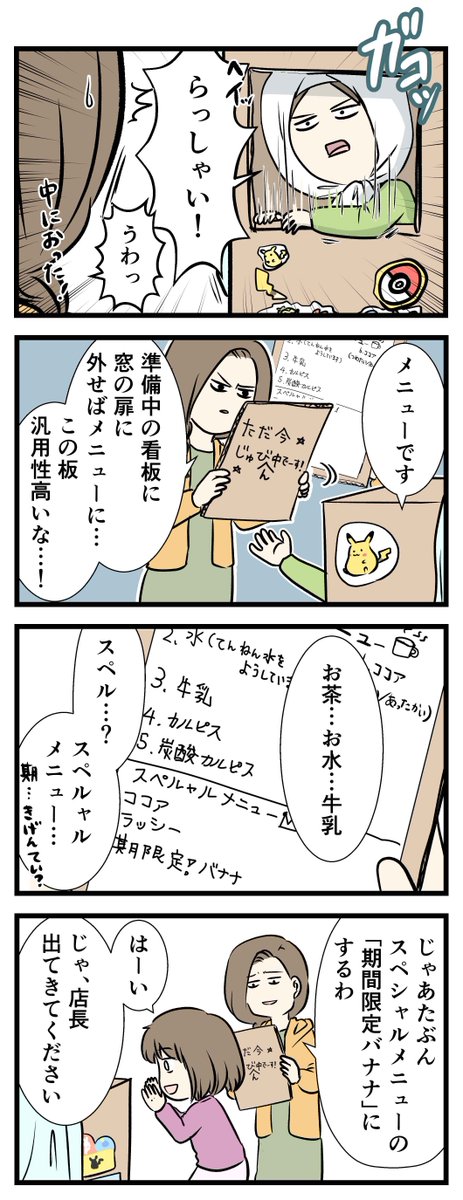 ガコッ
ヘイッ
らっしゃい!
うわっ
中におった!
メニューです
準備中の看板に
窓の扉に
外せばメニューに…
この板
汎用性高いな…!
ただ今
じゅび中でーす!
へん
2.水(てんねん水を
ようしています)
3.牛乳
4.カルピス
5.炭酸カルピス
スペルャル
ュー
6.ココア
お茶…お水…牛乳
スペル…?
スペルャル
メニュー…
期…きげんてい?
2.水(てんねん水を
ようしています
3.牛乳
4.カルピス
5.炭酸カルピス
スペルャルメニュー
ココア
ラッシー
期限定!バナナ
ュー
ココア
/あったかい)
じゃあたぶん
スペシャルメニューの
「期間限定バナナ」に
するわ
はーい
じゃ、店長
出てきてください
だ今
び中でーす!
へん